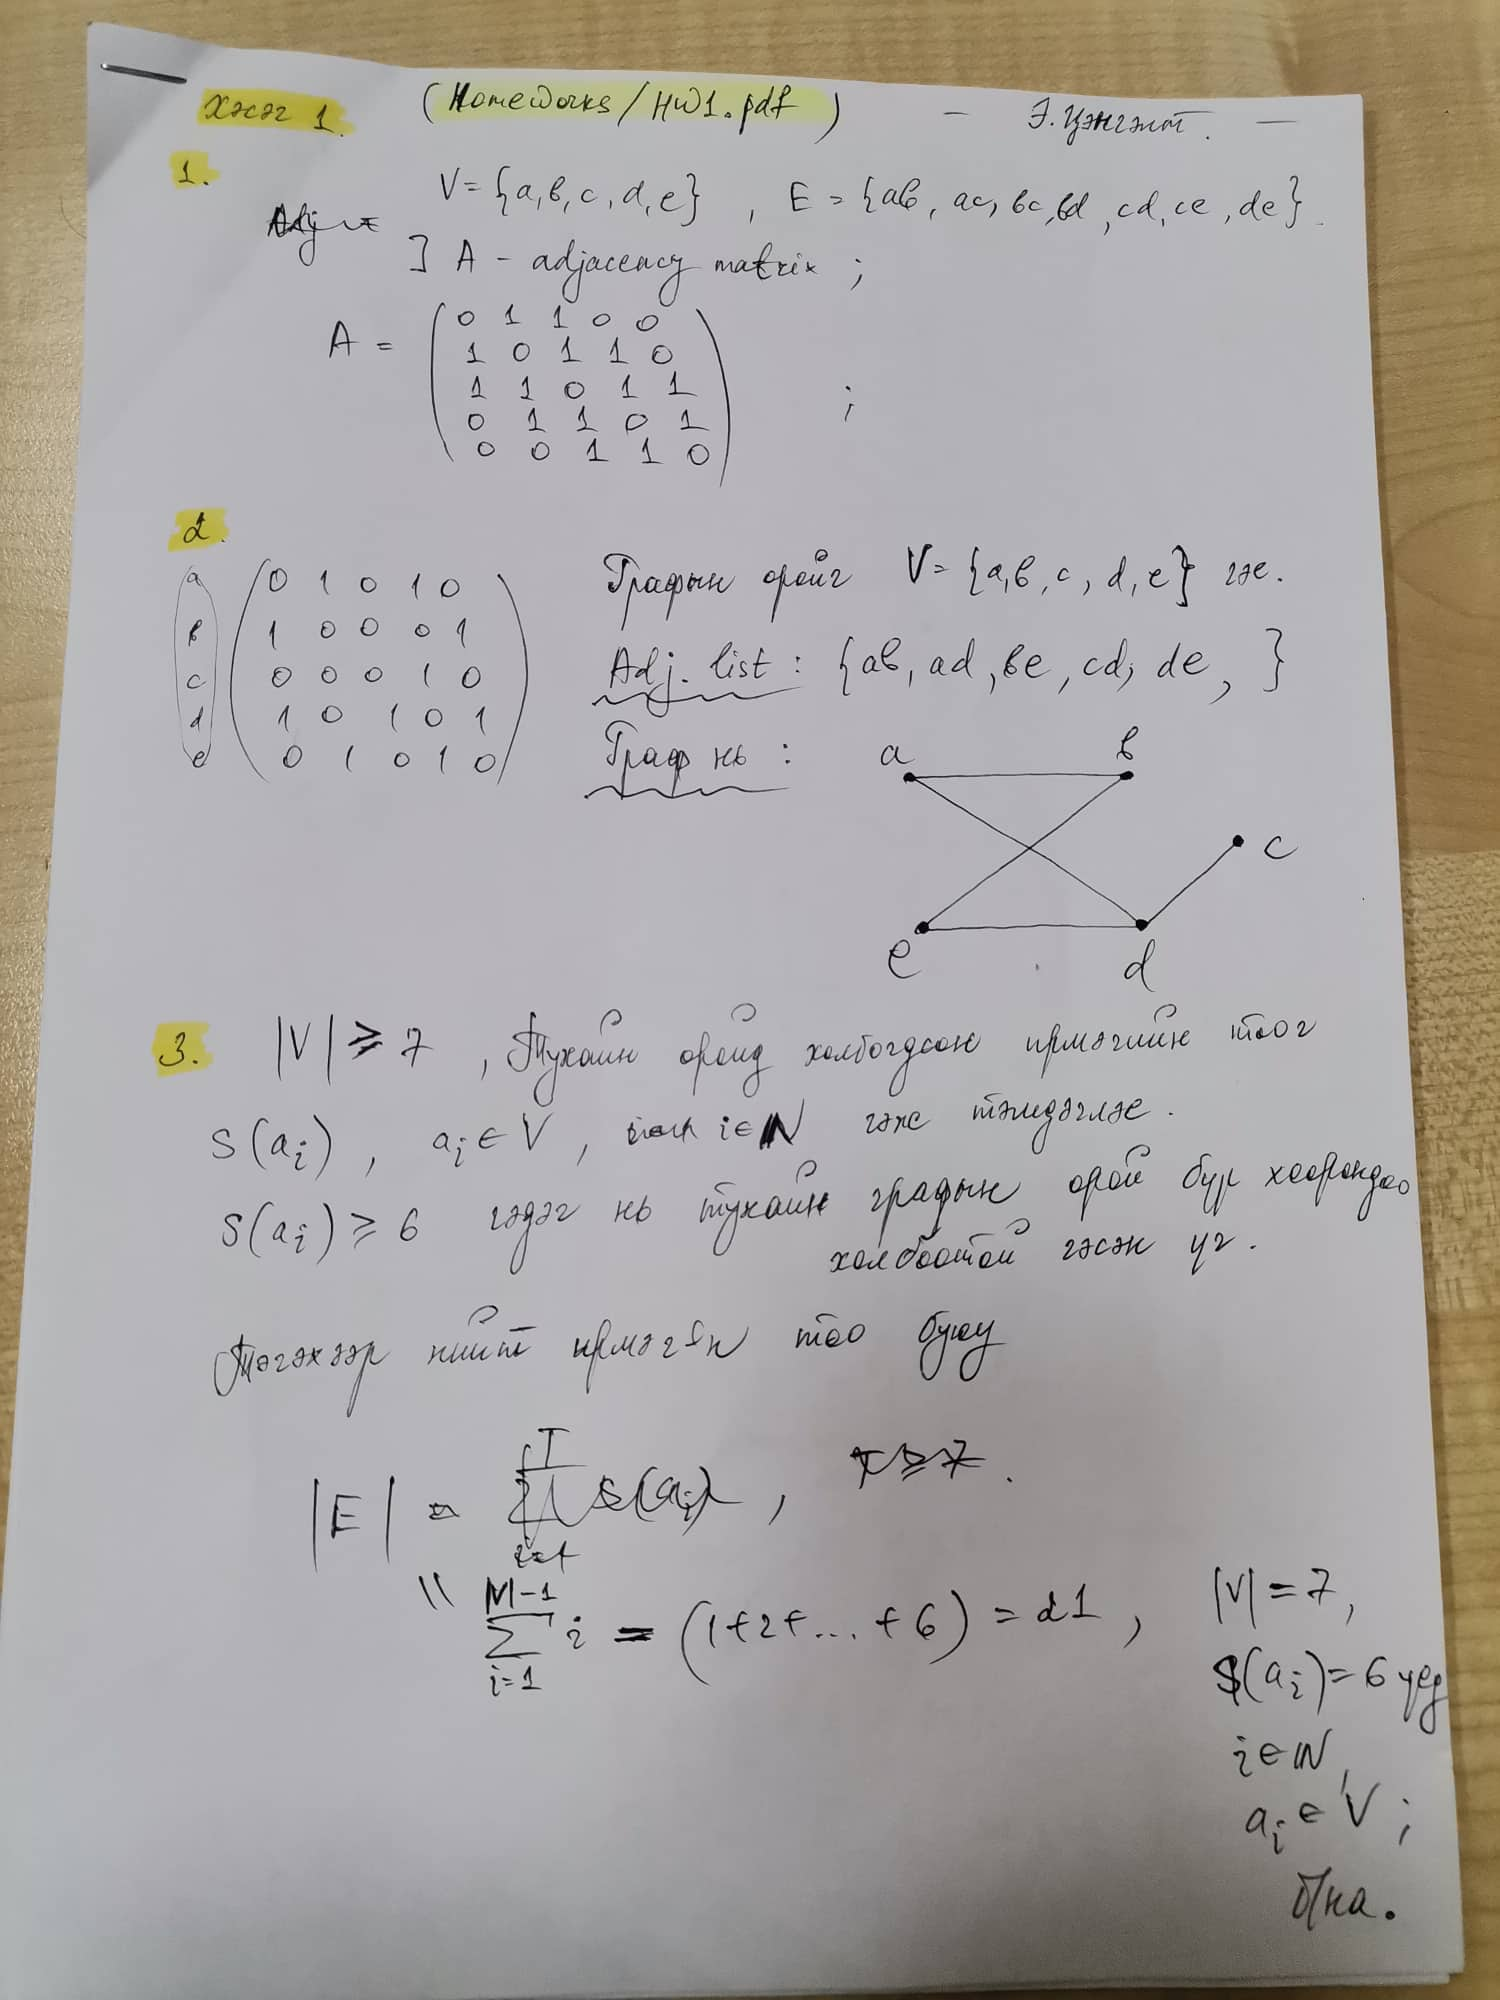 Хэсэг 1. (Homeworks/HW1.pdf) — Э. Цэнгэлт. —
1.
V = {a, b, c, d, e}, E = {ab, ac, bc, bd, cd, ce, de}.
] A - adjacency matrix ;
A =
0 1 1 0 0
1 0 1 1 0
1 1 0 1 1
0 1 1 0 1
0 0 1 1 0
;
2.
a 0 1 0 1 0
b 1 0 0 0 1
c 0 0 0 1 0
d 1 0 1 0 1
e 0 1 0 1 0
Графын оройг V = {a, b, c, d, e} гэе.
Adj. list : {ab, ad, be, cd, de, }
Граф нь :
a b
c
e d
3. |V| ≥ 7, Тухайн оройд холбогдсон ирмэгийн тоог
S(ai), ai ∈ V, i ∈ N гэж тэмдэглэе.
S(ai) ≥ 6 гэдэг нь тухайн графын орой бүр хоорондоо
холбоотой гэсэн үг.
Тэгэхээр нийт ирмэгийн тоо буюу
|E| =
" ∑ i=1 |V|-1 i = (1+2+...+6) = 21, |V| = 7,
S(ai) = 6 үед
i ∈ N,
ai ∈ V ;
б/на.